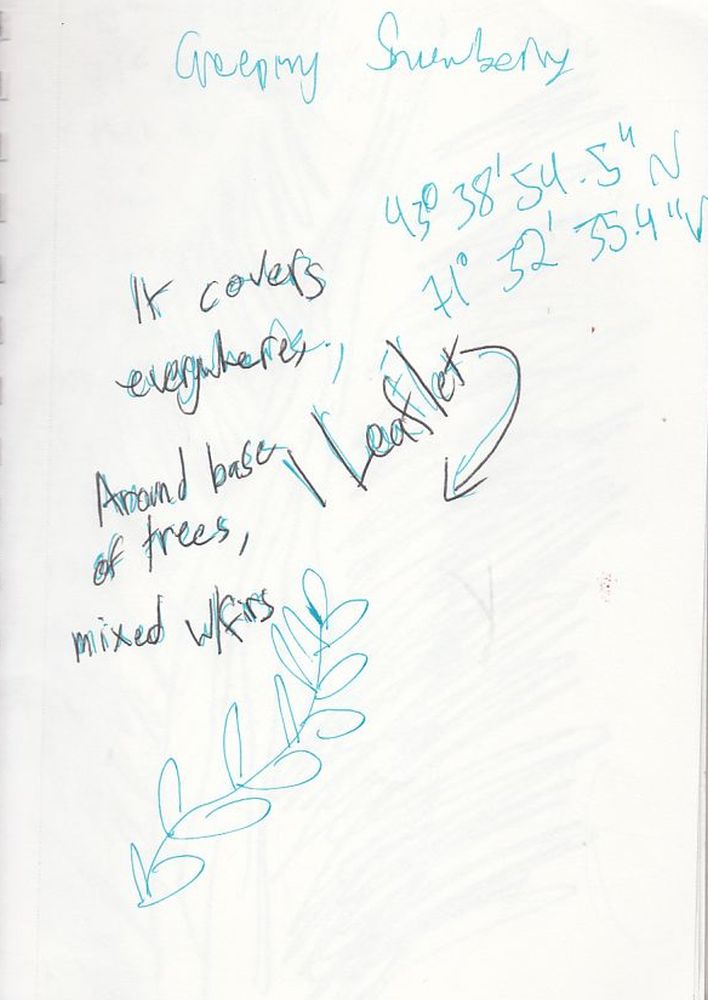 Creeping Snowberry
43° 38' 54.5" N
71° 52' 35.4" W
It covers
everywhere,
Around base
of trees,
mixed w/firs
1 Leaflet